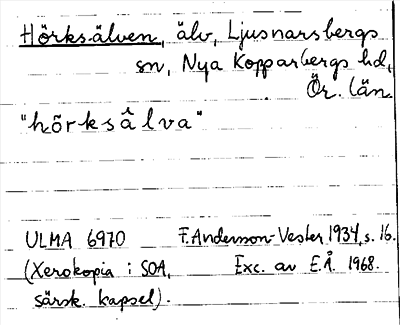 Hörksälven, älv, Ljusnarsbergs
sn, Nya Kopparbergs hd,
Ör. län.
"hörksâlva"
ULMA 6970 F. Andersson-Vester 1934, s. 16.
(Xerokopia i SOA, Exc. av E.Å. 1968.
särsk. kapsel).